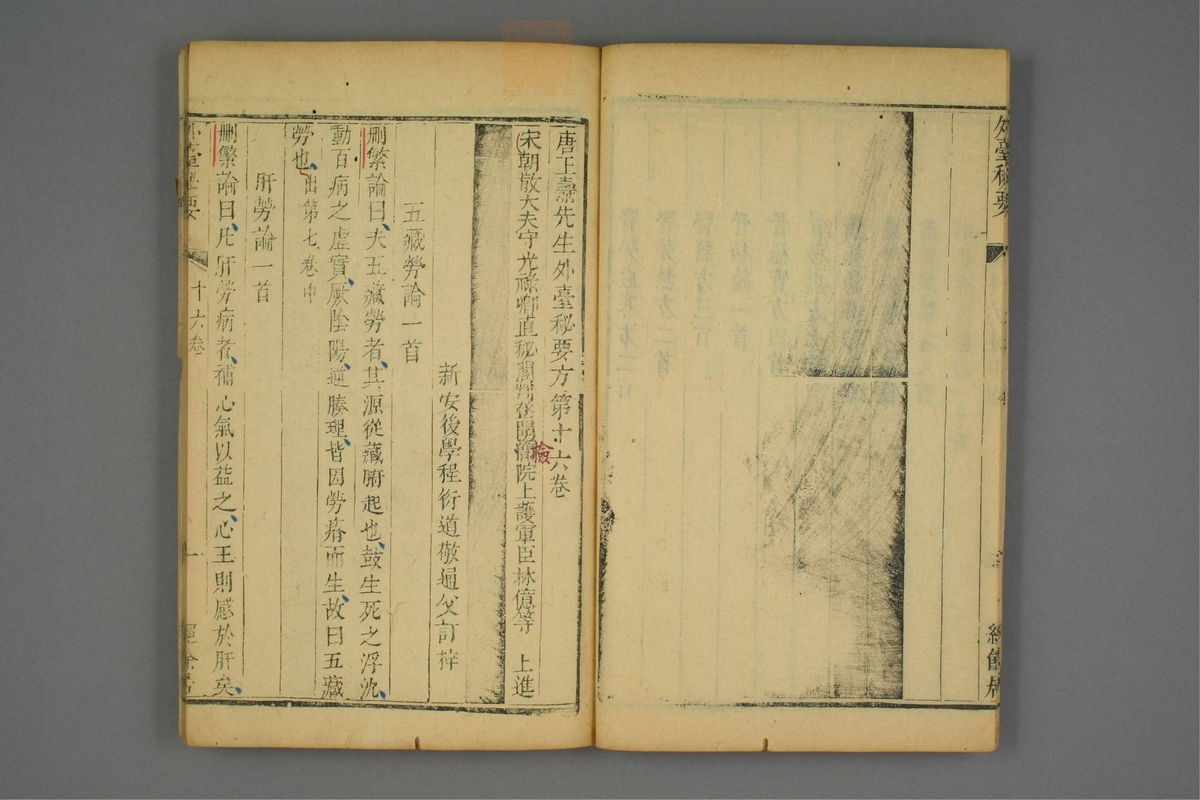 外臺秘要
經餘居
唐王燾先生外臺秘要方第十六卷
宋朝散大夫守光祿卿直秘閣判登聞簡院上護軍臣林億等 上進
檢
新安後學程衍道敬通父訂梓
五藏勞論一首
刪繁論曰夫五藏勞者其源從藏腑起也鼓生死之浮沉
動百病之虛實厥陰陽逆腠理皆因勞瘠而生故曰五藏
勞也出第七卷中
肝勞論一首
刪繁論曰凡肝勞病者補心氣以益之心王則感於肝矣
外臺秘要 十六卷 一 經餘居